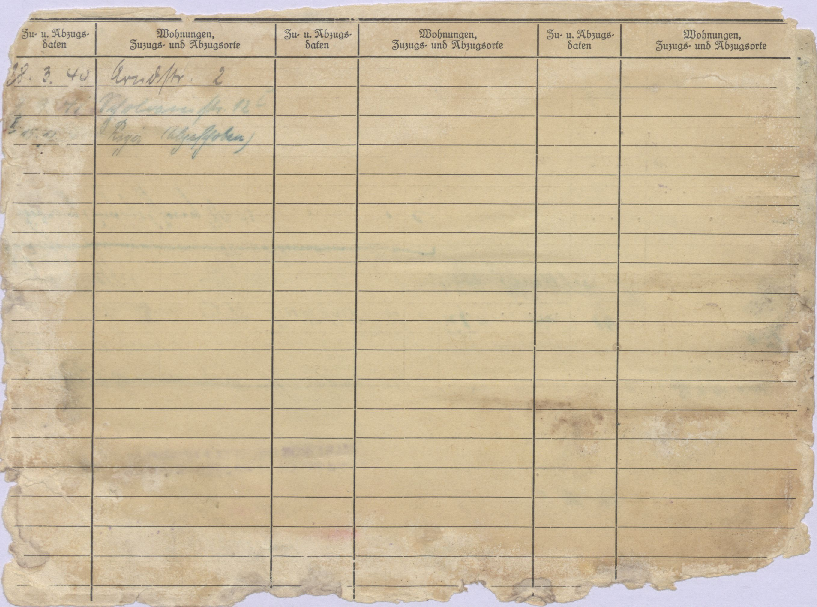 Zu- u. Abzugs-
daten
Wohnungen,
Zuzugs- und Abzugsorte
Zu- u. Abzugs-
daten
Wohnungen,
Zuzugs- und Abzugsorte
Zu- u. Abzugs-
daten
Wohnungen,
Zuzugs- und Abzugsorte
28. 3. 40 Arndtstr. 2
Riga (abgeschoben)